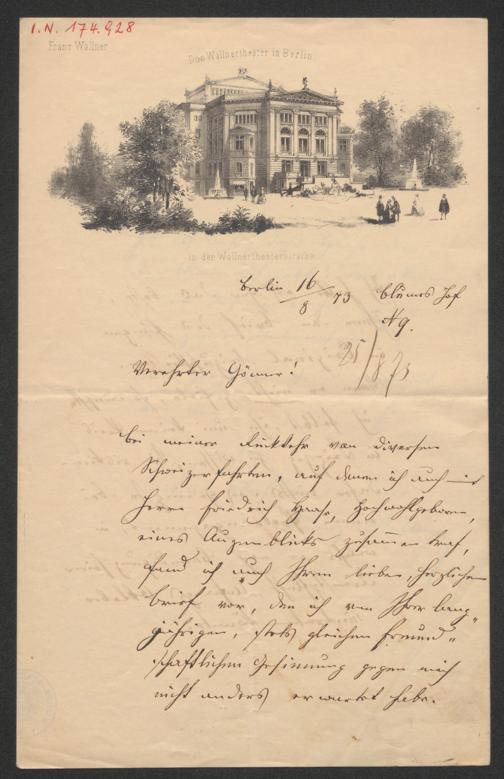 I.N. 174.928
Franz Wallner
Das Wallnertheater in Berlin
in der Wallnertheaterstrasse
Berlin 16/8 73 Blumes Hof
№ 9.
25/8 73
Verehrter Gönner!
Bei meiner Rückkehr von diversen
Schweizerfahrten, auf denen ich auch mit
Herrn Friedrich Haase, Hochwohlgeboren,
eines Augenblicks zusammen traf,
fand ich auch Ihren lieben, herzlichen
Brief vor, den ich von Ihrer lang„
jährigen, stets gleichen freund„
schaftlichen Gesinnung gegen mich
nicht anders erwartet habe.